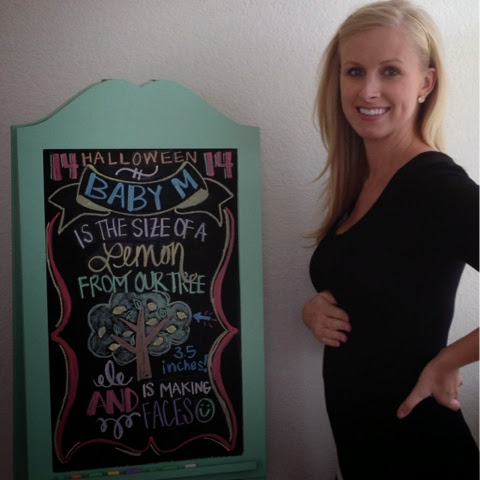 14 HALLOWEEN 14
BABY M
IS THE SIZE OF A
Lemon
FROM OUR TREE
3.5
inches!
AND IS MAKING
FACES